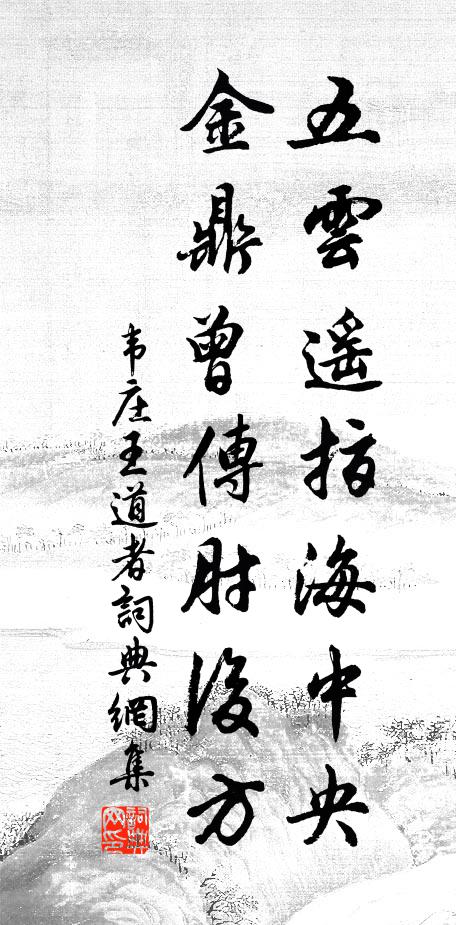 五雲遥指海中央
金鼎曾傳肘後方
韦庄王道者詞典網集
詞典网印